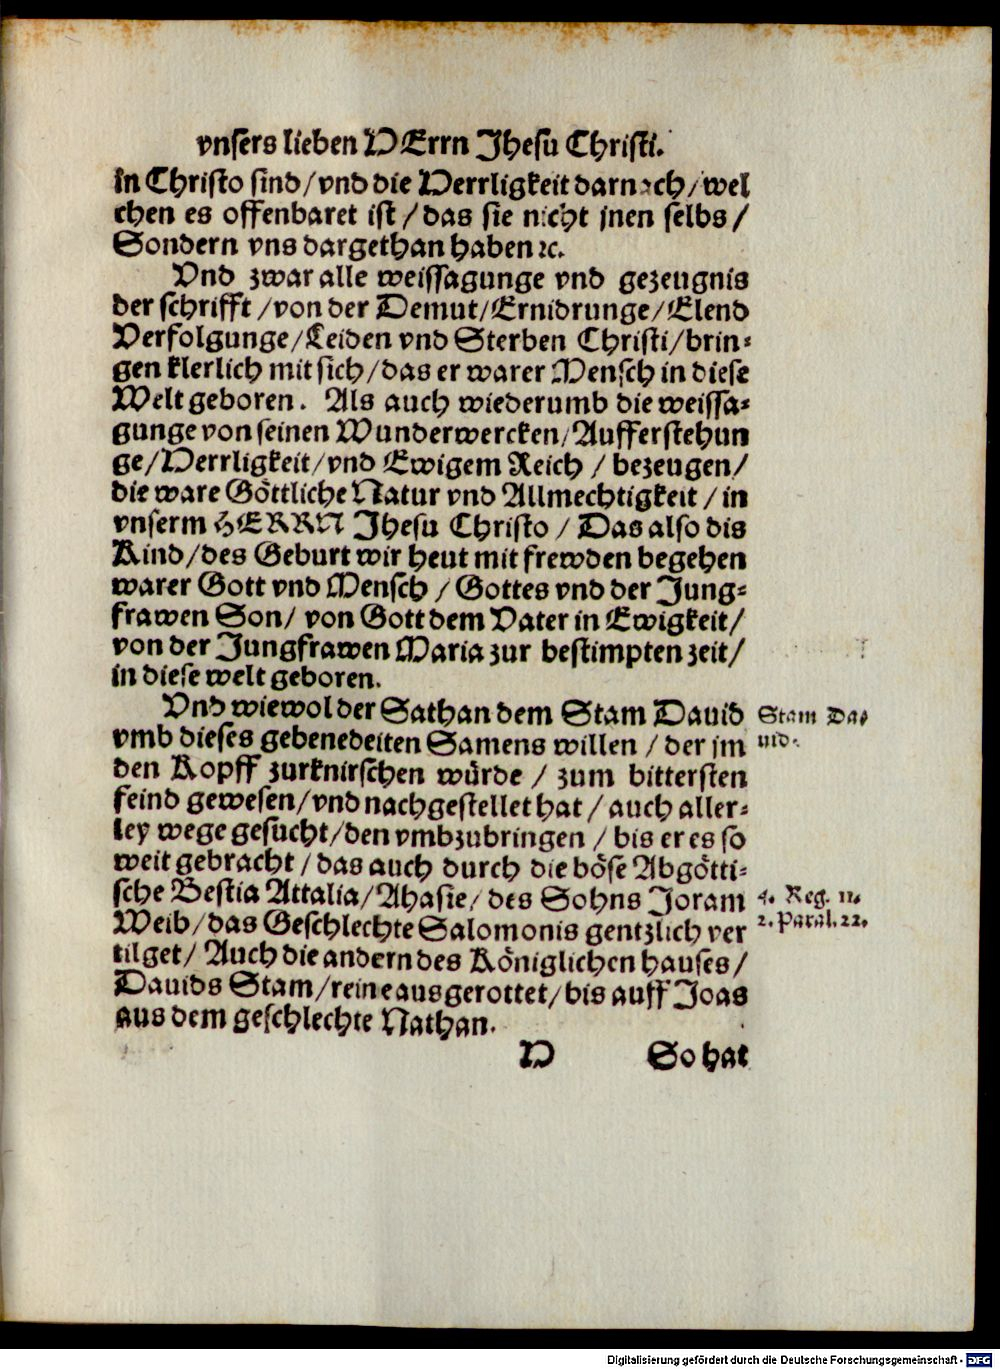 vnsers lieben HErrn Jhesu Christi.
in Christo sind/vnd die Herrligkeit darnach/wel
chen es offenbaret ist/das sie nicht jnen selbs/
Sondern vns dargethan haben ꝛc.
Vnd zwar alle weissagunge vnd gezeugnis
der schrifft/von der Demut/Ernidrunge/Elend
Verfolgunge/Leiden vnd Sterben Christi/brin⸗
gen klerlich mit sich/das er warer Mensch in diese
Welt geboren. Als auch wiederumb die weissa⸗
gunge von seinen Wunderwercken/Aufferstehun
ge/Herrligkeit/vnd Ewigem Reich/bezeugen/
die ware Göttliche Natur vnd Allmechtigkeit/in
vnserm HERRN Jhesu Christo/Das also dis
Kind/des Geburt wir heut mit frewden begehen
warer Gott vnd Mensch/Gottes vnd der Jung⸗
frawen Son/von Gott dem Vater in Ewigkeit/
von der Jungfrawen Maria zur bestimpten zeit/
in diese welt geboren.
Vnd wiewol der Sathan dem Stam Dauid
vmb dieses gebenedeiten Samens willen/der jm
den Kopff zurknirschen würde/zum bittersten
feind gewesen/vnd nachgestellet hat/auch aller⸗
ley wege gesucht/den vmbzubringen/bis er es so
weit gebracht/das auch durch die böse Abgötti⸗
sche Bestia Attalia/Ahasie/des Sohns Joram
Weib/das Geschlechte Salomonis gentzlich ver
tilget/Auch die andern des Königlichen hauses/
Dauids Stam/reine ausgerottet/bis auff Joas
aus dem geschlechte Nathan.
Stam Da⸗
uid.
4. Reg. 11.
2. Paral. 22.
D So hat
Digitalisierung gefördert durch die Deutsche Forschungsgemeinschaft - DFG